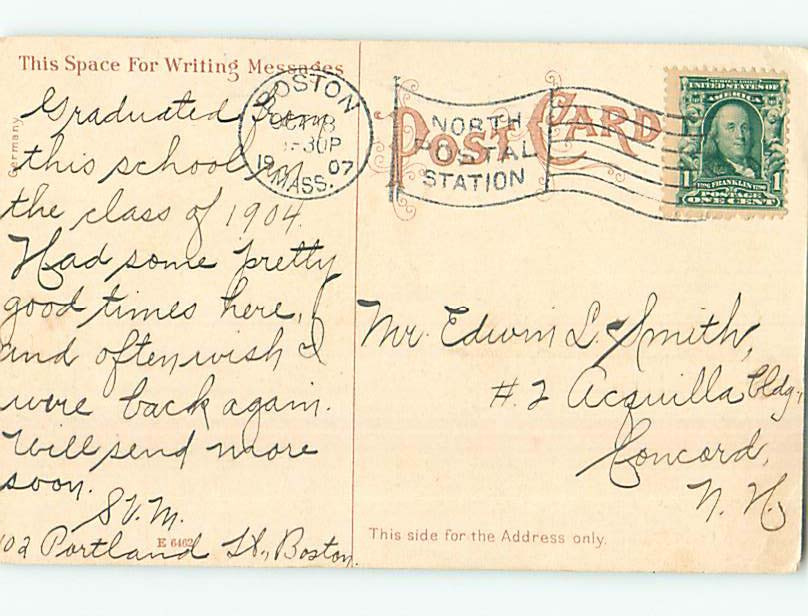 This Space For Writing Messages
Germany
Graduated from
this school in
the class of 1904.
Had some pretty
good times here,
and often wish I
were back again.
Will send more
soon.
S.V.M.
102 Portland St., Boston.
E 6462
BOSTON
OCT 8
30P
19 07
MASS.
NORTH
POSTAL
STATION
POST CARD
SERIES 1902
UNITED STATES OF
AMERICA
1 1
FRANKLIN
POSTAGE
ONE CENT
Mr. Edwin L. Smith,
#. 2 Acquilla bldg.,
Concord,
N. H.
This side for the Address only.